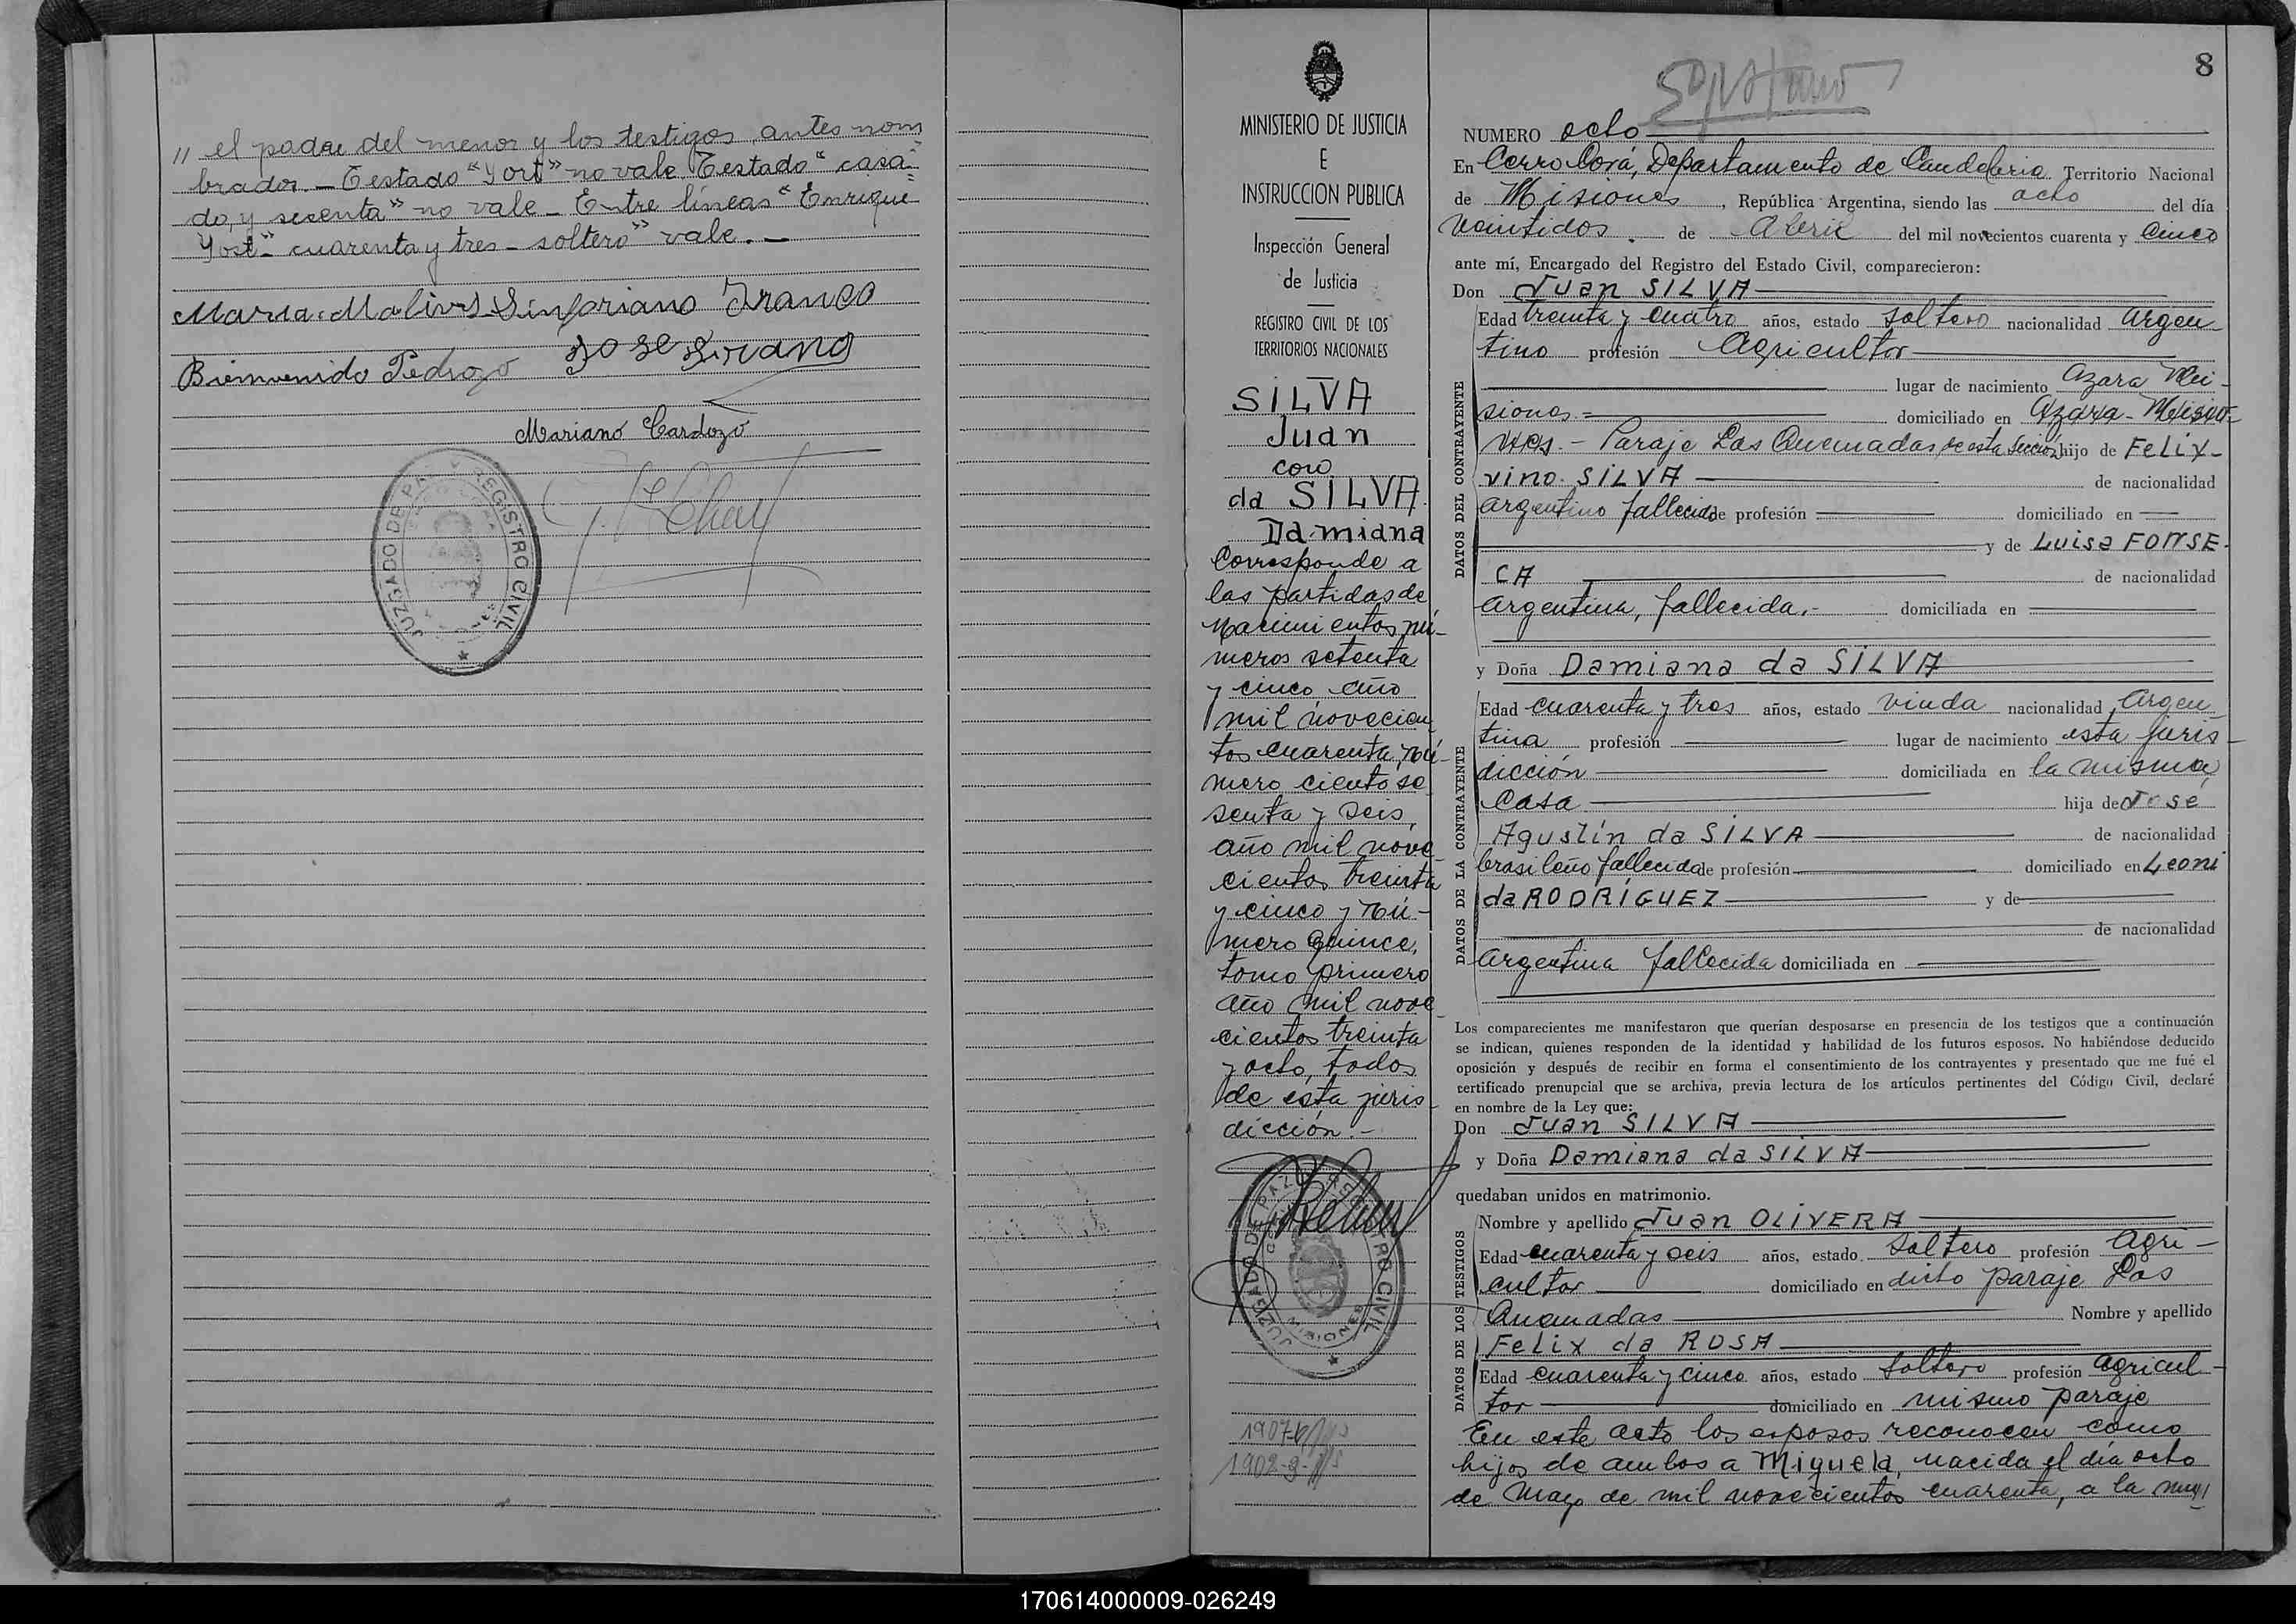 " el padre del menor y los testigos antes nom
brados. — Testado "Yort" no vale Testado "casa=
do, y sesenta" no vale — Entre líneas "Enrique
Yost — cuarenta y tres — soltero" vale. —
Maria Malivs Sinforiano Franco
Bienvenido Pedrozo Jose Sirvano
Mariano Cardozo
JUZGADO DE PAZ Y REGISTRO CIVIL
MINISTERIO DE JUSTICIA
E
INSTRUCCION PUBLICA
Inspección General
de Justicia
REGISTRO CIVIL DE LOS
TERRITORIOS NACIONALES
SILVA
Juan
con
da SILVA
Damiana
Corresponde a
las partidas de
nacimientos nú-
meros setenta
y cinco, año
mil novecien
tos cuarenta, nú-
mero ciento se
senta y seis,
año mil nove
cientos treinta
y cinco y nú-
mero quince,
tomo primero
año mil nove
cientos treinta
y ocho, todos
de esta juris
dicción.-
JUZGADO DE PAZ Y REGISTRO CIVIL
MISIONES
1907-6
1902-9-
8
NUMERO ocho
En Cerro Corá, Departamento de Candelaria Territorio Nacional
de Misiones, República Argentina, siendo las ocho del día
veintidos de Abril del mil novecientos cuarenta y cinco
ante mí, Encargado del Registro del Estado Civil, comparecieron:
Don Juan SILVA
DATOS DEL CONTRAYENTE
Edad treinta y cuatro años, estado soltero nacionalidad argen
tino profesión agricultor
lugar de nacimiento Azara Mi-
siones = domiciliado en Azara - Misio-
nes. - Paraje Las Quemadas, de esta Sección hijo de FeLix-
vino SILVA de nacionalidad
argentino fallecido de profesión domiciliado en
y de Luisa FONSE-
CA de nacionalidad
argentina, fallecida.- domiciliada en
y Doña Damiana da SILVA
DATOS DE LA CONTRAYENTE
Edad cuarenta y tres años, estado viuda nacionalidad argen
tina profesión lugar de nacimiento esta juris-
dicción domiciliada en la misma
casa hija de José
Agustín da SILVA de nacionalidad
brasileño fallecido de profesión domiciliado en Leoni
da RODRÍGUEZ y de
de nacionalidad
argentina fallecida domiciliada en
Los comparecientes me manifestaron que querían desposarse en presencia de los testigos que a continuación
se indican, quienes responden de la identidad y habilidad de los futuros esposos. No habiéndose deducido
oposición y después de recibir en forma el consentimiento de los contrayentes y presentado que me fué el
certificado prenupcial que se archiva, previa lectura de los artículos pertinentes del Código Civil, declaré
en nombre de la Ley que:
Don Juan SILVA
y Doña Damiana da SILVA
quedaban unidos en matrimonio.
DATOS DE LOS TESTIGOS
Nombre y apellido Juan OLIVERA
Edad cuarenta y seis años, estado soltero profesión agri-
cultor domiciliado en dicho paraje Las
Quemadas Nombre y apellido
FeLix da ROSA
Edad cuarenta y cinco años, estado soltero profesión agricul-
tor domiciliado en mismo paraje
En este acto los esposos reconocen como
hijos de ambos a Miguela, nacida el día ocho
de Mayo de mil novecientos cuarenta, a la
170614000009-026249